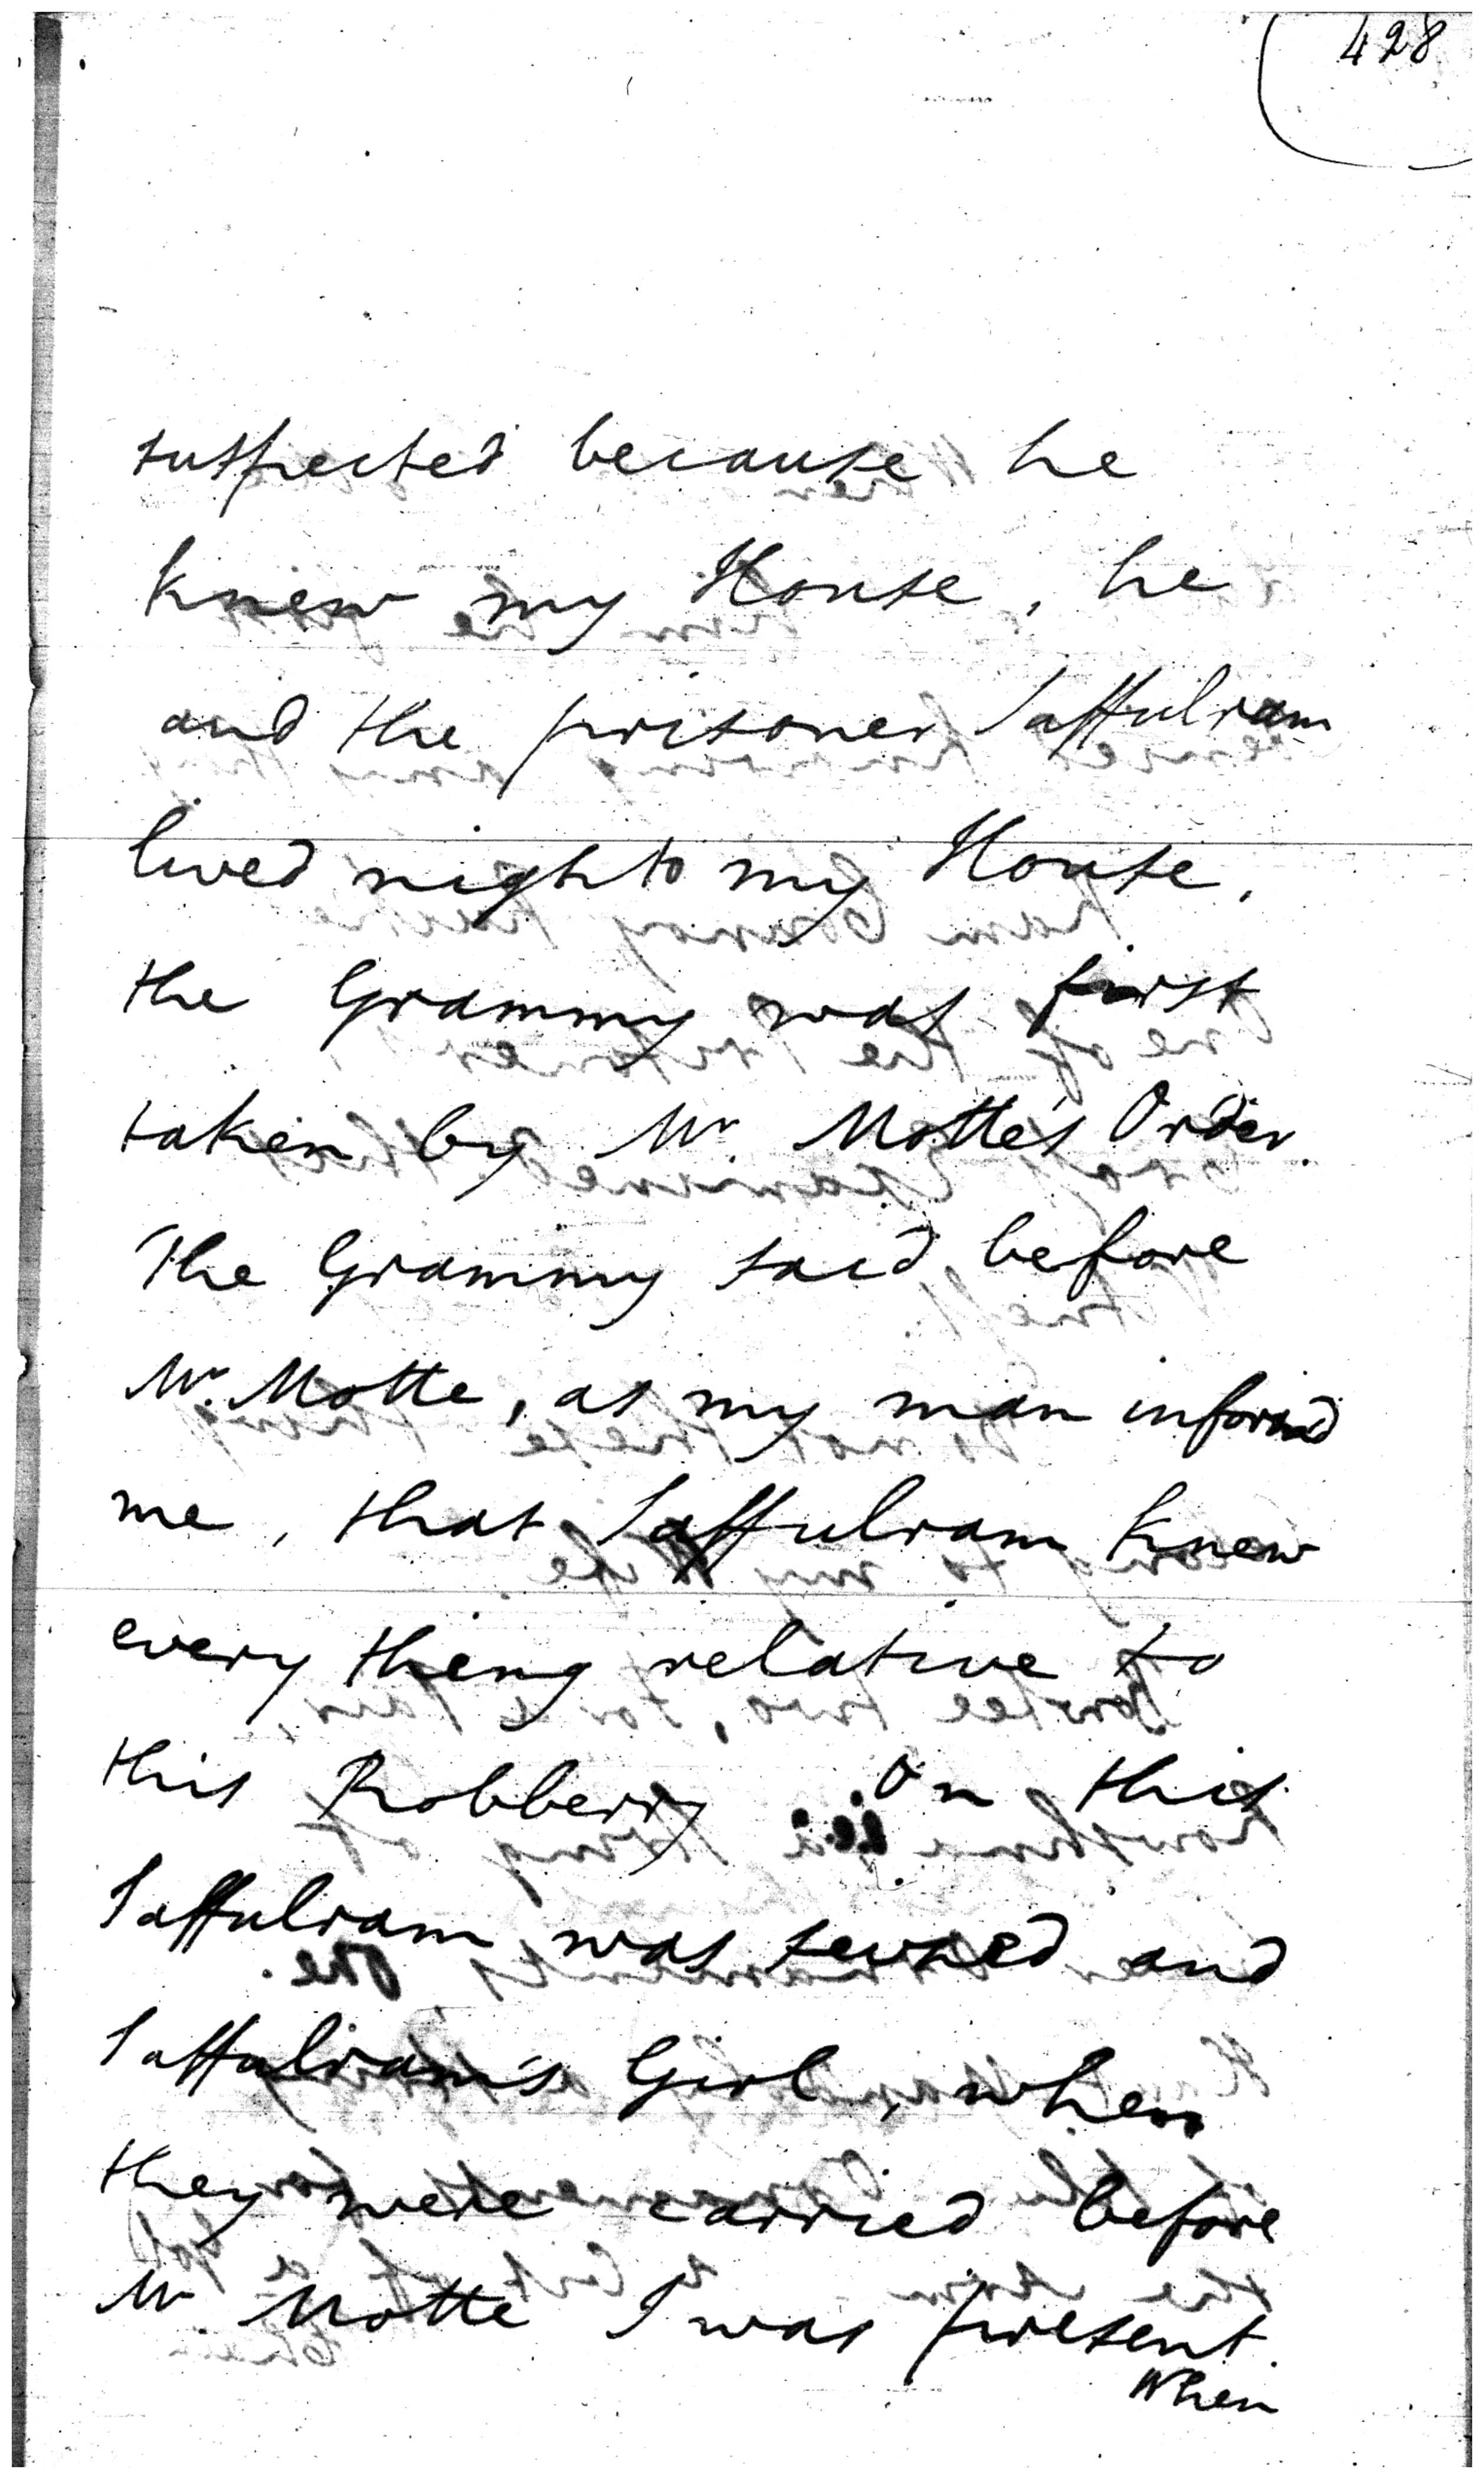 428
suspected because he
knew my House, he
and the prisoner Saffulram
lived nigh to my House,
the Grammy was first
taken by Mr. Motte's Order.
The Grammy said before
Mr. Motte, as my man informd
me, that Saffulram knew
every thing relative to
this Robbery On this
Saffulram was seized and
Saffulram's Girl, when
they were carried before
Mr. Motte I was present.
When